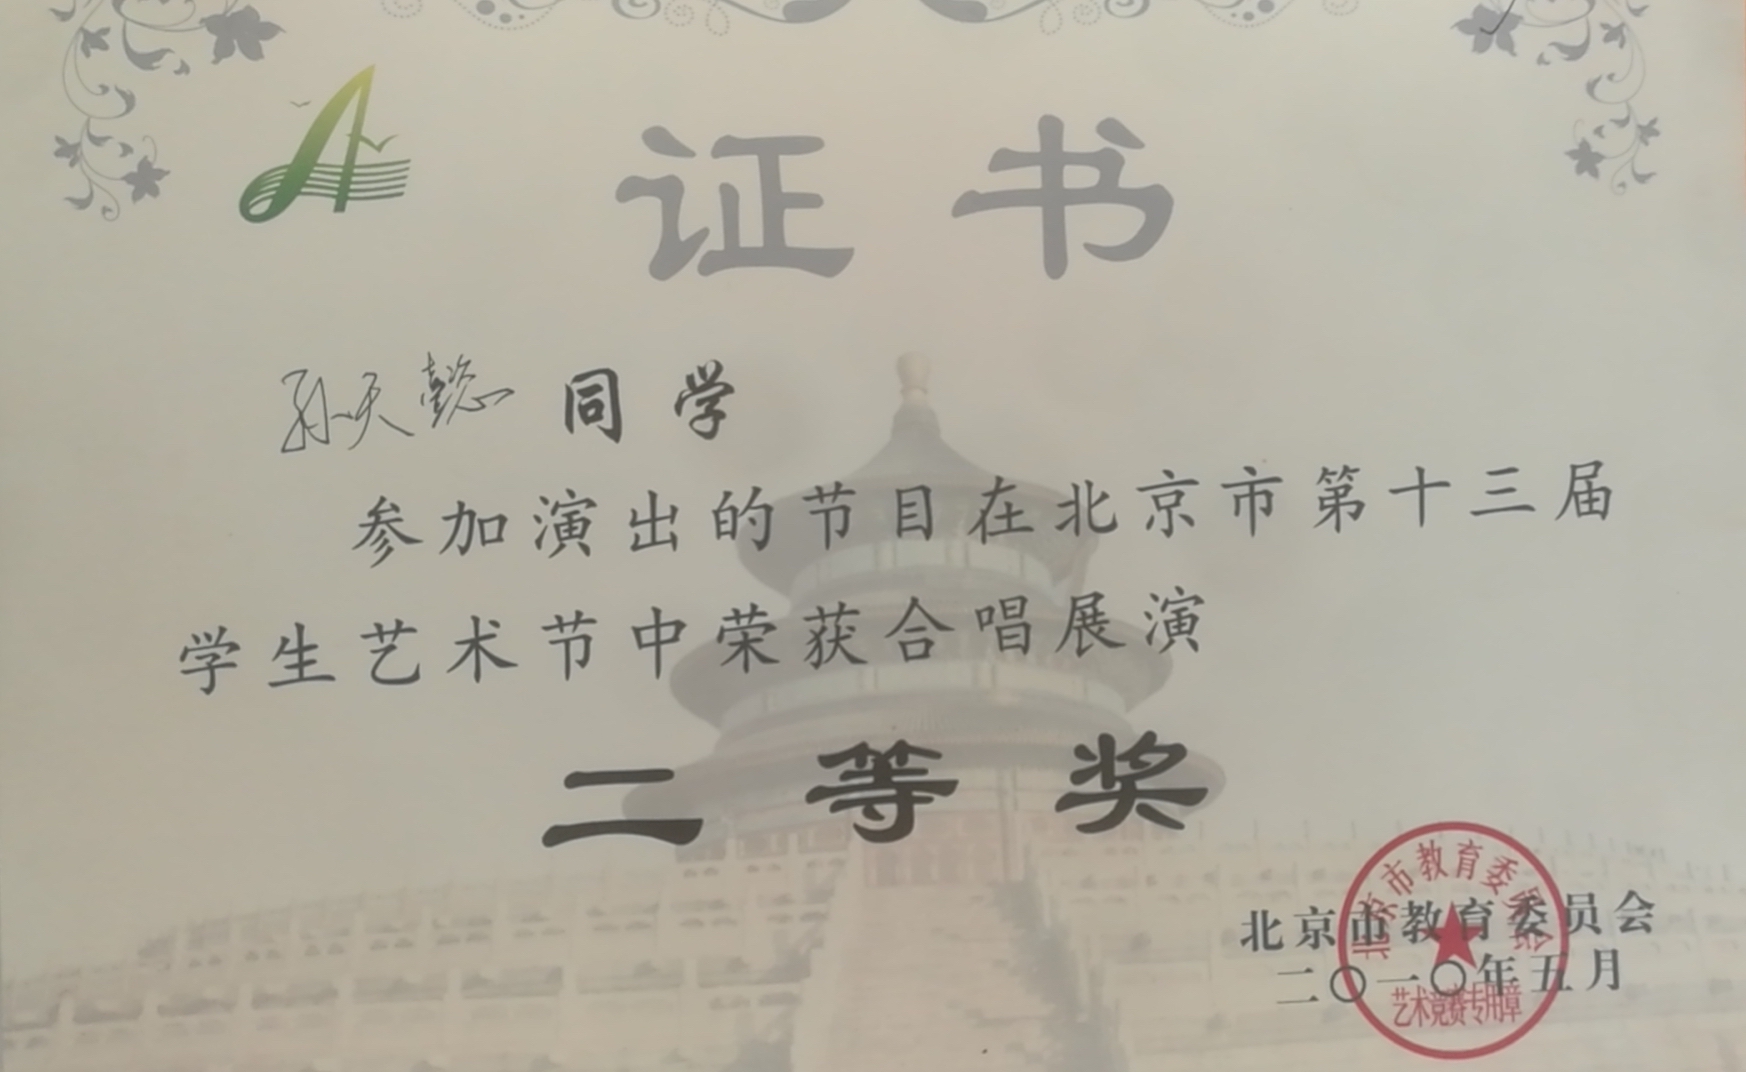 证书
孙天懿 同学
参加演出的节目在北京市第十三届
学生艺术节中荣获合唱展演
二等奖
北京市教育委员会
二〇一〇年五月
北京市教育委员会
艺术竞赛专用章